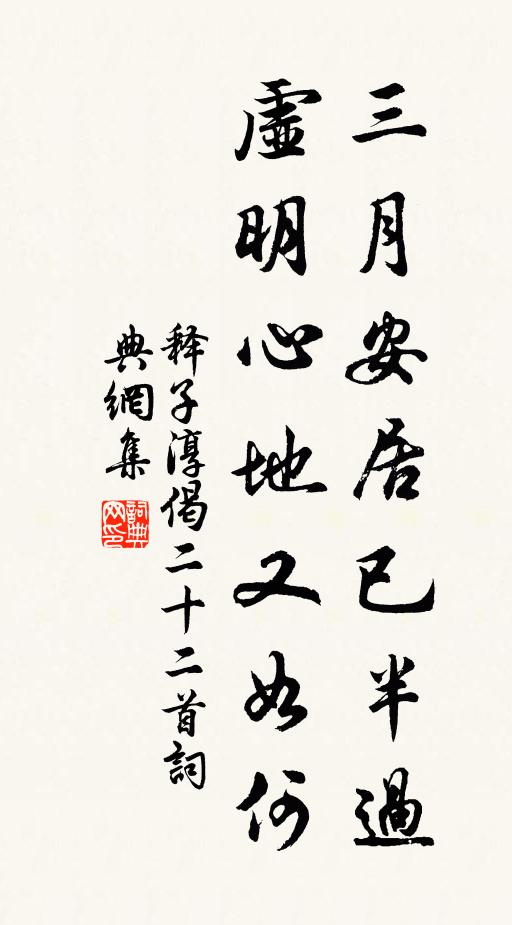 三月安居已半過
虛明心地又如何
释子淳偈二十二首詞
典網集
詞典
网印